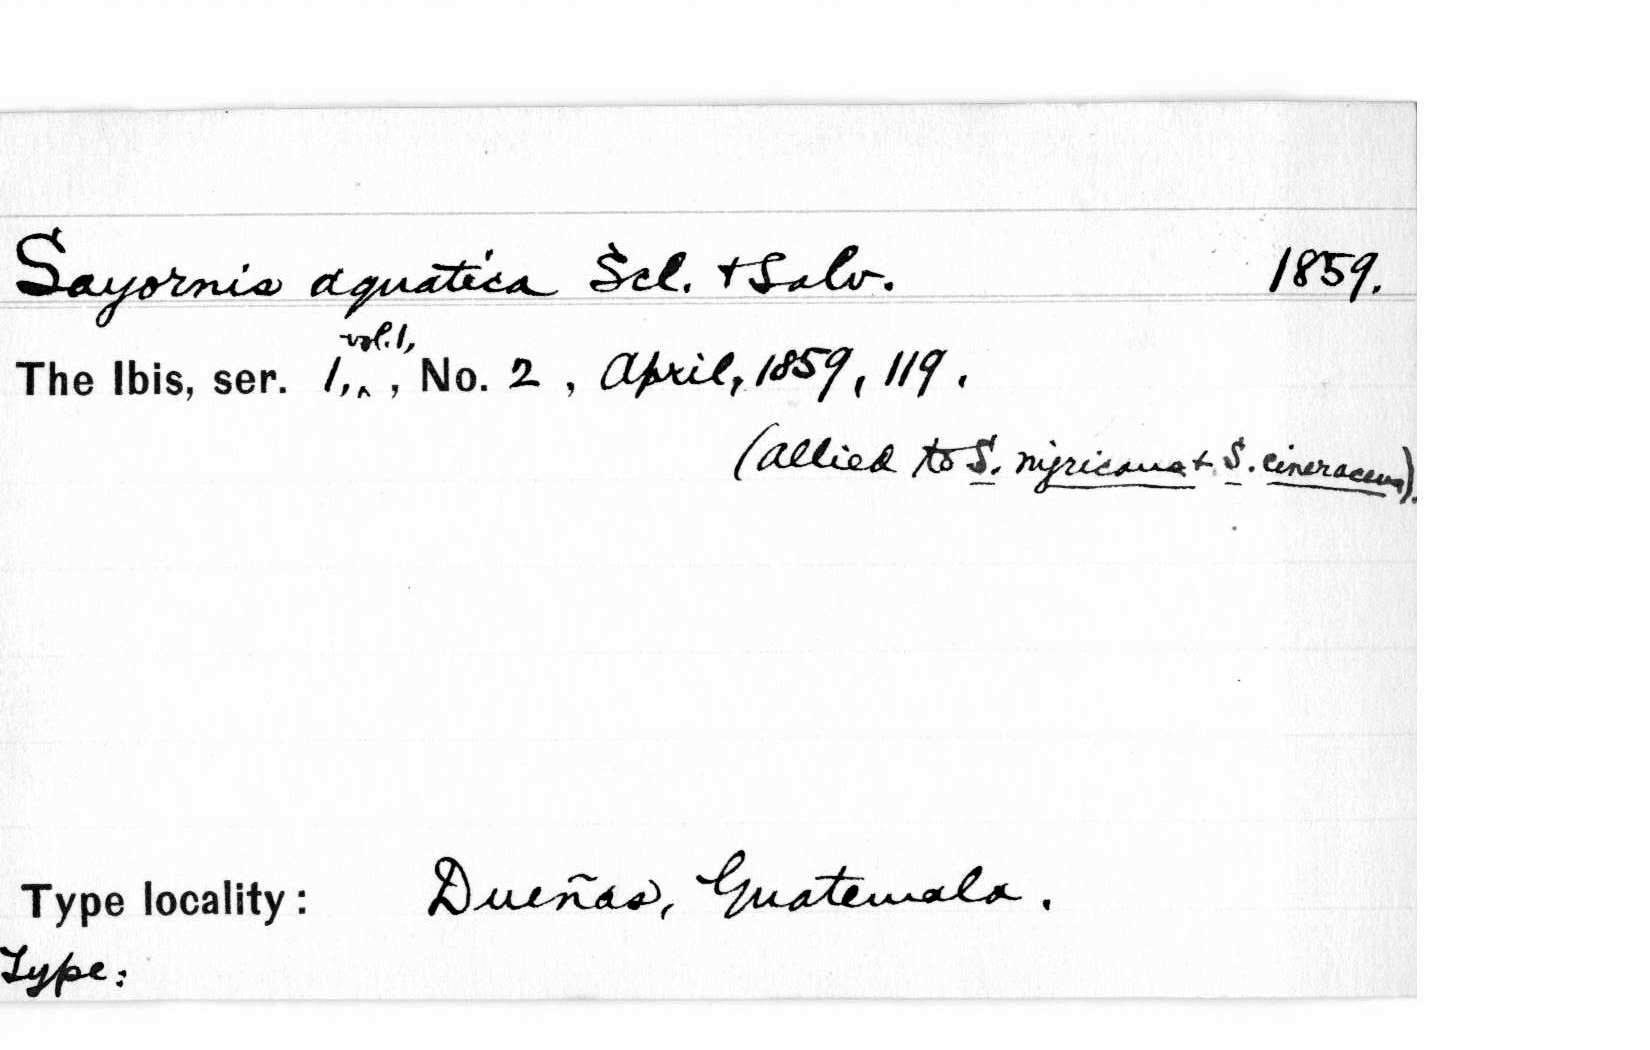 Sayornis aquatica Scl. + Salv. 1859.
The Ibis, ser. 1, vol. 1, , No. 2 , April, 1859, 119.
(allied to S. nigricans + S. cineraceus).
Type locality: Dueñas, Guatemala.
Type: